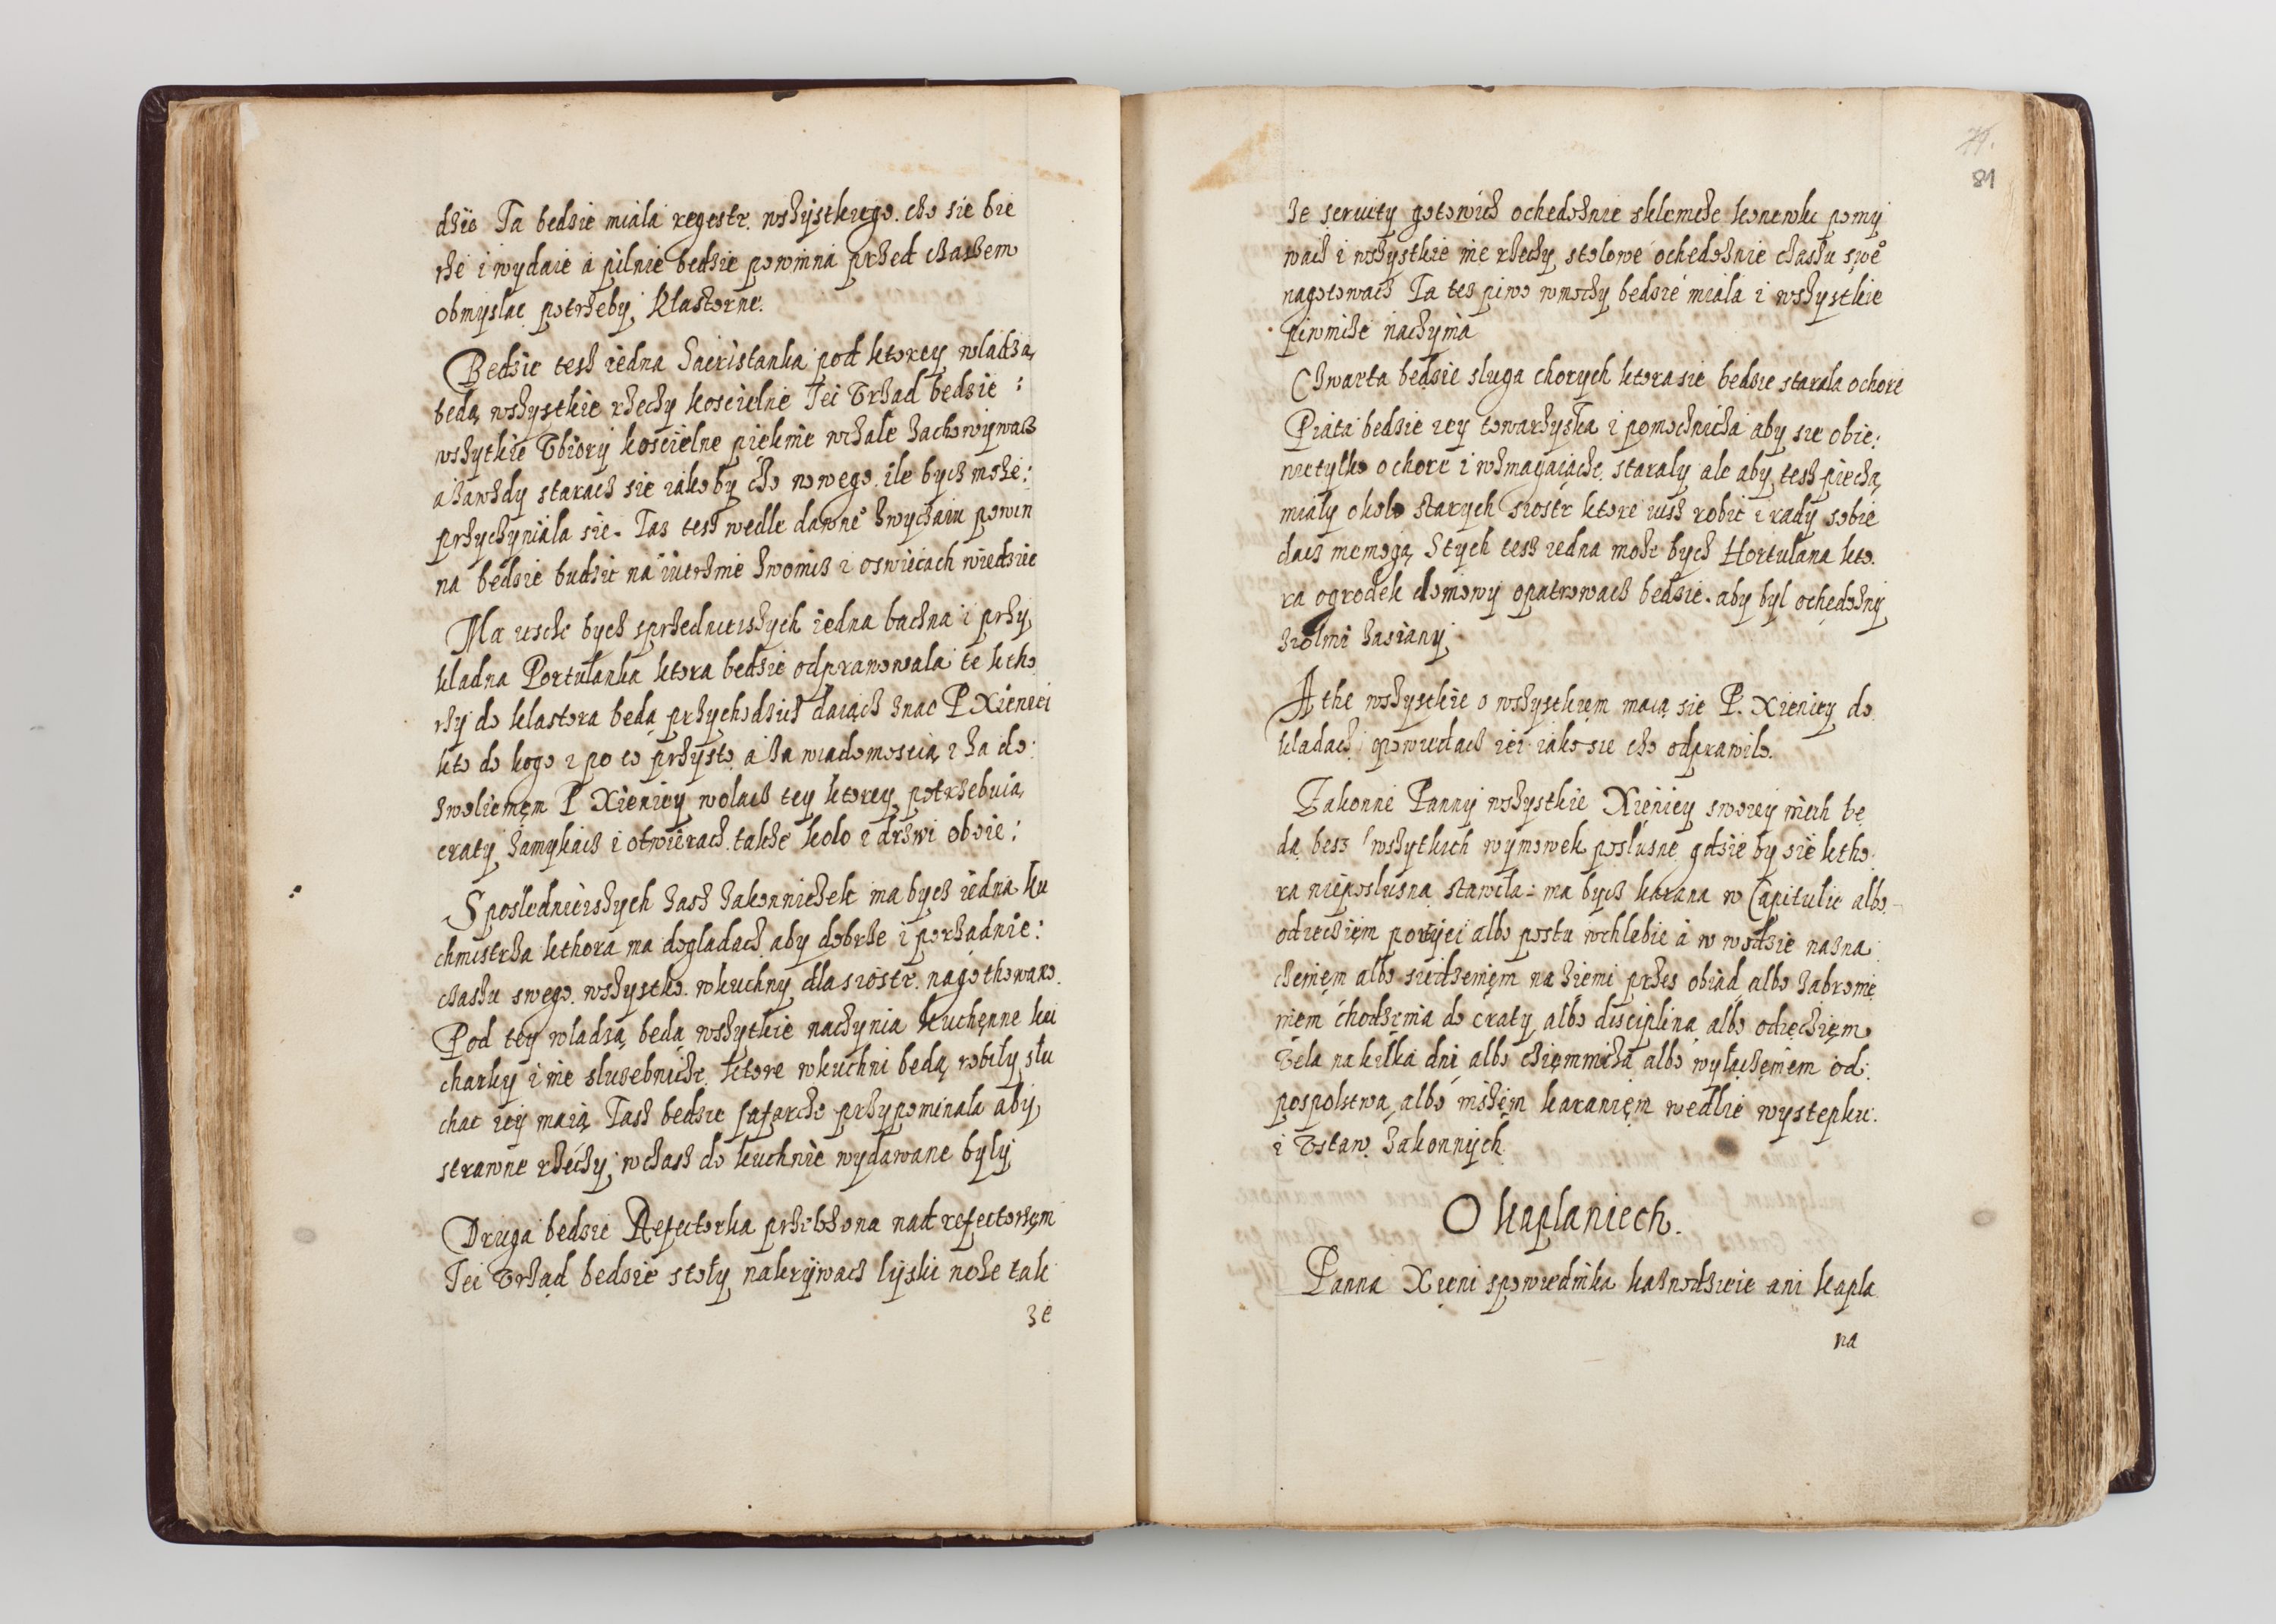 dzie Ta bedzie miala regestr. wszystkiego. cho sie bie
rze i wydaie a pilnie bedzie powinna przed czaszem
obmyslac potrzeby Klastorne.
Bedzie tesz iedna Sacristanka pod ktorey wladza
beda wszystkie rzeczy koscielne Iei Vrzad bedzie :
wszytkie Vbiory koscielne pieknie wczale zachowywacz
a zawzdy staracz sie iakoby cho nowego. ile bycz moze :
przyczyniala sie. Taz tesz wedle dawne° zwyczaiu powin
na bedzie budzic na iutrznie zwonicz i o swiecach wiedziec
Ma iescze bycz zprzednieiszych iedna baczna i przy
kladna Portulanka ktora bedzie odprawowala te ktho
rzy do klastora beda przychodzicz daiacz znac P Xieniei
kto do kogo i po co przyszto a za wiadomoscia i za do:
zwoliemem P Xieniey wolacz tey ktorey potrzebuia
craty zamykacz i otwieracz. takze kolo i drzwi oboie :
Sposlednieiszych zasz zakonniczek ma bycz iedna ku
chmistrza kthora ma dogladacz aby dobrze i porzadnie :
czaszu swego. wszystko. wkuchny dla siostr. nagothowano.
Pod tey wladza beda wszytkie naczynia kuchenne ku
charky i ine sluzebnicze. ktore wkuchni beda robily slu
chac iey maia Tasz bedzie szafarcho przypominala aby
strawne rzeczy wczasz do kuchnie wydawane byly
Druga bedzie Refectorka przelozona nad refectorzem
Iei Vrzad bedzie stoly nakrywacz lyski noze tak
ze
81
ze serwity gotowicz ochedoznie sklenicze konewki pomy
wacz i wszystkie ine rzeczy stolowe ochedoznie czaszu swe°
nagotowacz Ta tez piwo wmoczy bedzie miala i wszystkie
piwnicze naczynia
Czwarta bedzie sluga chorych ktora sie bedzie starala o chore
Piata bedzie iey towarzyszka i pomocznicza aby sie obie :
nietylko o chore i wzmagaiacze. staraly ale aby tesz piecza
mialy okolo starych siostr ktore iusz robic i rady sobie
dacz niemoga Stych tesz iedna moze bycz Hortulana kto
ra ogrodek domowy opatrowacz bedzie. aby byl ochedozny
ziolmi zasiany
A the wszystkie o wszystkiem maia sie P. Xieniey do
kladacz opowiedacz iei iako sie cho odprawilo.
Zakonne Panny wszystkie Xieniey swoiey niech be
da besz wszytkich wymowek poslusne gdzie by sie ktho
ra nieposlusna stawila : ma bycz karana w Capitulie albo
odieciem powiei albo postu wchlebie a w wodzie nazna
czeniem albo siedzeniem na ziemi przes obiad albo zabronie
niem chodzenia do craty albo disciplina albo odieciem
Vela na kilka dni albo ciemnicza albo wylaczeniem od :
pospolstwa albo inszem karaniem wedlie wystepku.
i Vstaw Zakonnych.
O kaplaniech.
Panna Xieni spowiednika kaznodzieie ani kapla
na